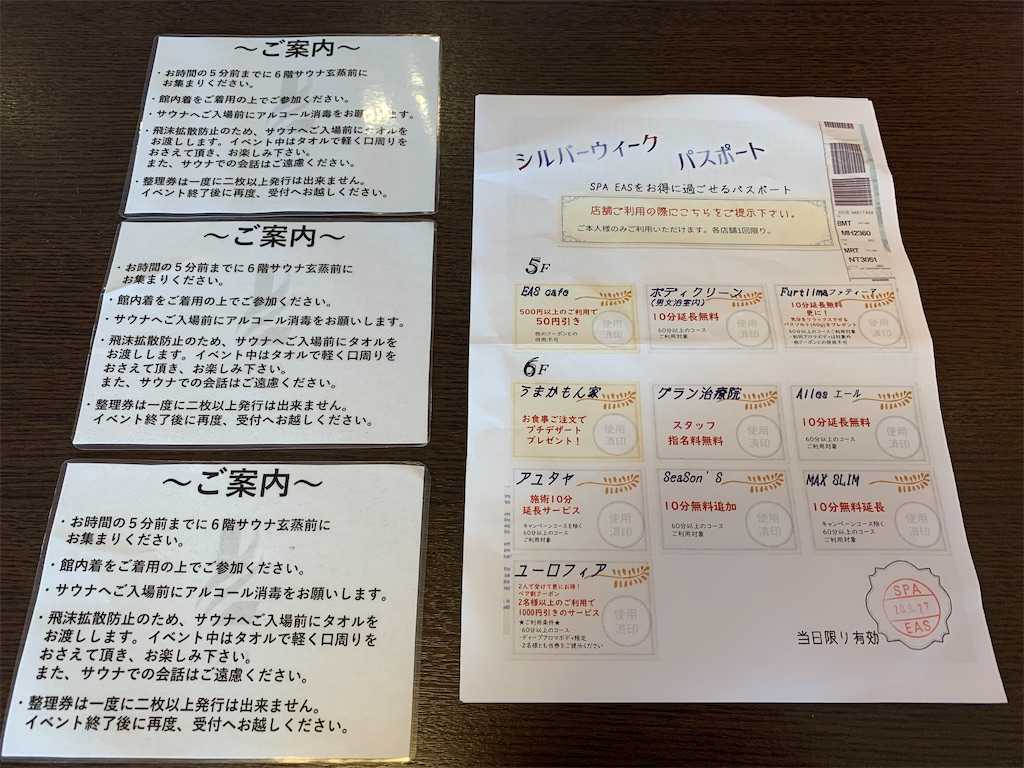 ～ご案内～
・お時間の５分前までに６階サウナ玄蒸前に
お集まりください。
・館内着をご着用の上でご参加ください。
・サウナへご入場前にアルコール消毒をお願いします。
・飛沫拡散防止のため、サウナへご入場前にタオルを
お渡しします。イベント中はタオルで軽く口周りを
おさえて頂き、お楽しみ下さい。
また、サウナでの会話はご遠慮ください。
・整理券は一度に二枚以上発行は出来ません。
イベント終了後に再度、受付へお越しください。
～ご案内～
・お時間の５分前までに６階サウナ玄蒸前に
お集まりください。
・館内着をご着用の上でご参加ください。
・サウナへご入場前にアルコール消毒をお願いします。
・飛沫拡散防止のため、サウナへご入場前にタオルを
お渡しします。イベント中はタオルで軽く口周りを
おさえて頂き、お楽しみ下さい。
また、サウナでの会話はご遠慮ください。
・整理券は一度に二枚以上発行は出来ません。
イベント終了後に再度、受付へお越しください。
～ご案内～
・お時間の５分前までに６階サウナ玄蒸前に
お集まりください。
・館内着をご着用の上でご参加ください。
・サウナへご入場前にアルコール消毒をお願いします。
・飛沫拡散防止のため、サウナへご入場前にタオルを
お渡しします。イベント中はタオルで軽く口周りを
おさえて頂き、お楽しみ下さい。
また、サウナでの会話はご遠慮ください。
・整理券は一度に二枚以上発行は出来ません。
イベント終了後に再度、受付へお越しください。
シルバーウィーク パスポート
SPA EASをお得に過ごせるパスポート
店舗ご利用の際にこちらをご提示下さい。
ご本人様のみご利用いただけます。各店舗1回限り。
BMT
MH2360
MRT
NT3051
5F
EAS cafe
500円以上のご利用で
50円引き
他のクーポンとの
併用不可
使用
済印
ボディクリーン
(男女浴室内)
10分延長無料
60分以上のコース
ご利用対象
使用
済印
Furtiimaファティーマ
10分延長無料
更に！
気分をリラックスさせる
バスソルト(60g)をプレゼント
・60分以上のコースご利用対象
・他クーポンとの併用不可
使用
済印
6F
うまかもん家
お食事ご注文で
プチデザート
プレゼント！
使用
済印
グラン治療院
スタッフ
指名料無料
使用
済印
Ailes エール
10分延長無料
60分以上のコース
ご利用対象
使用
済印
アユタヤ
施術10分
延長サービス
キャンペーンコースを除く
60分以上のコース
ご利用対象
使用
済印
SeaSon'S
10分無料追加
60分以上のコース
ご利用対象
使用
済印
MAX SLIM
10分無料延長
キャンペーンコース除く
60分以上のコース
ご利用対象
使用
済印
ユーロフィア
2人で受けて更にお得！
ペア割クーポン
2名様以上のご利用で
1000円引きのサービス
★ご利用条件★
・60分以上のコース
・ディープアロマボディ限定
・2名様とも当券をご提示ください
使用
済印
当日限り有効
SPA
20.9.27
EAS